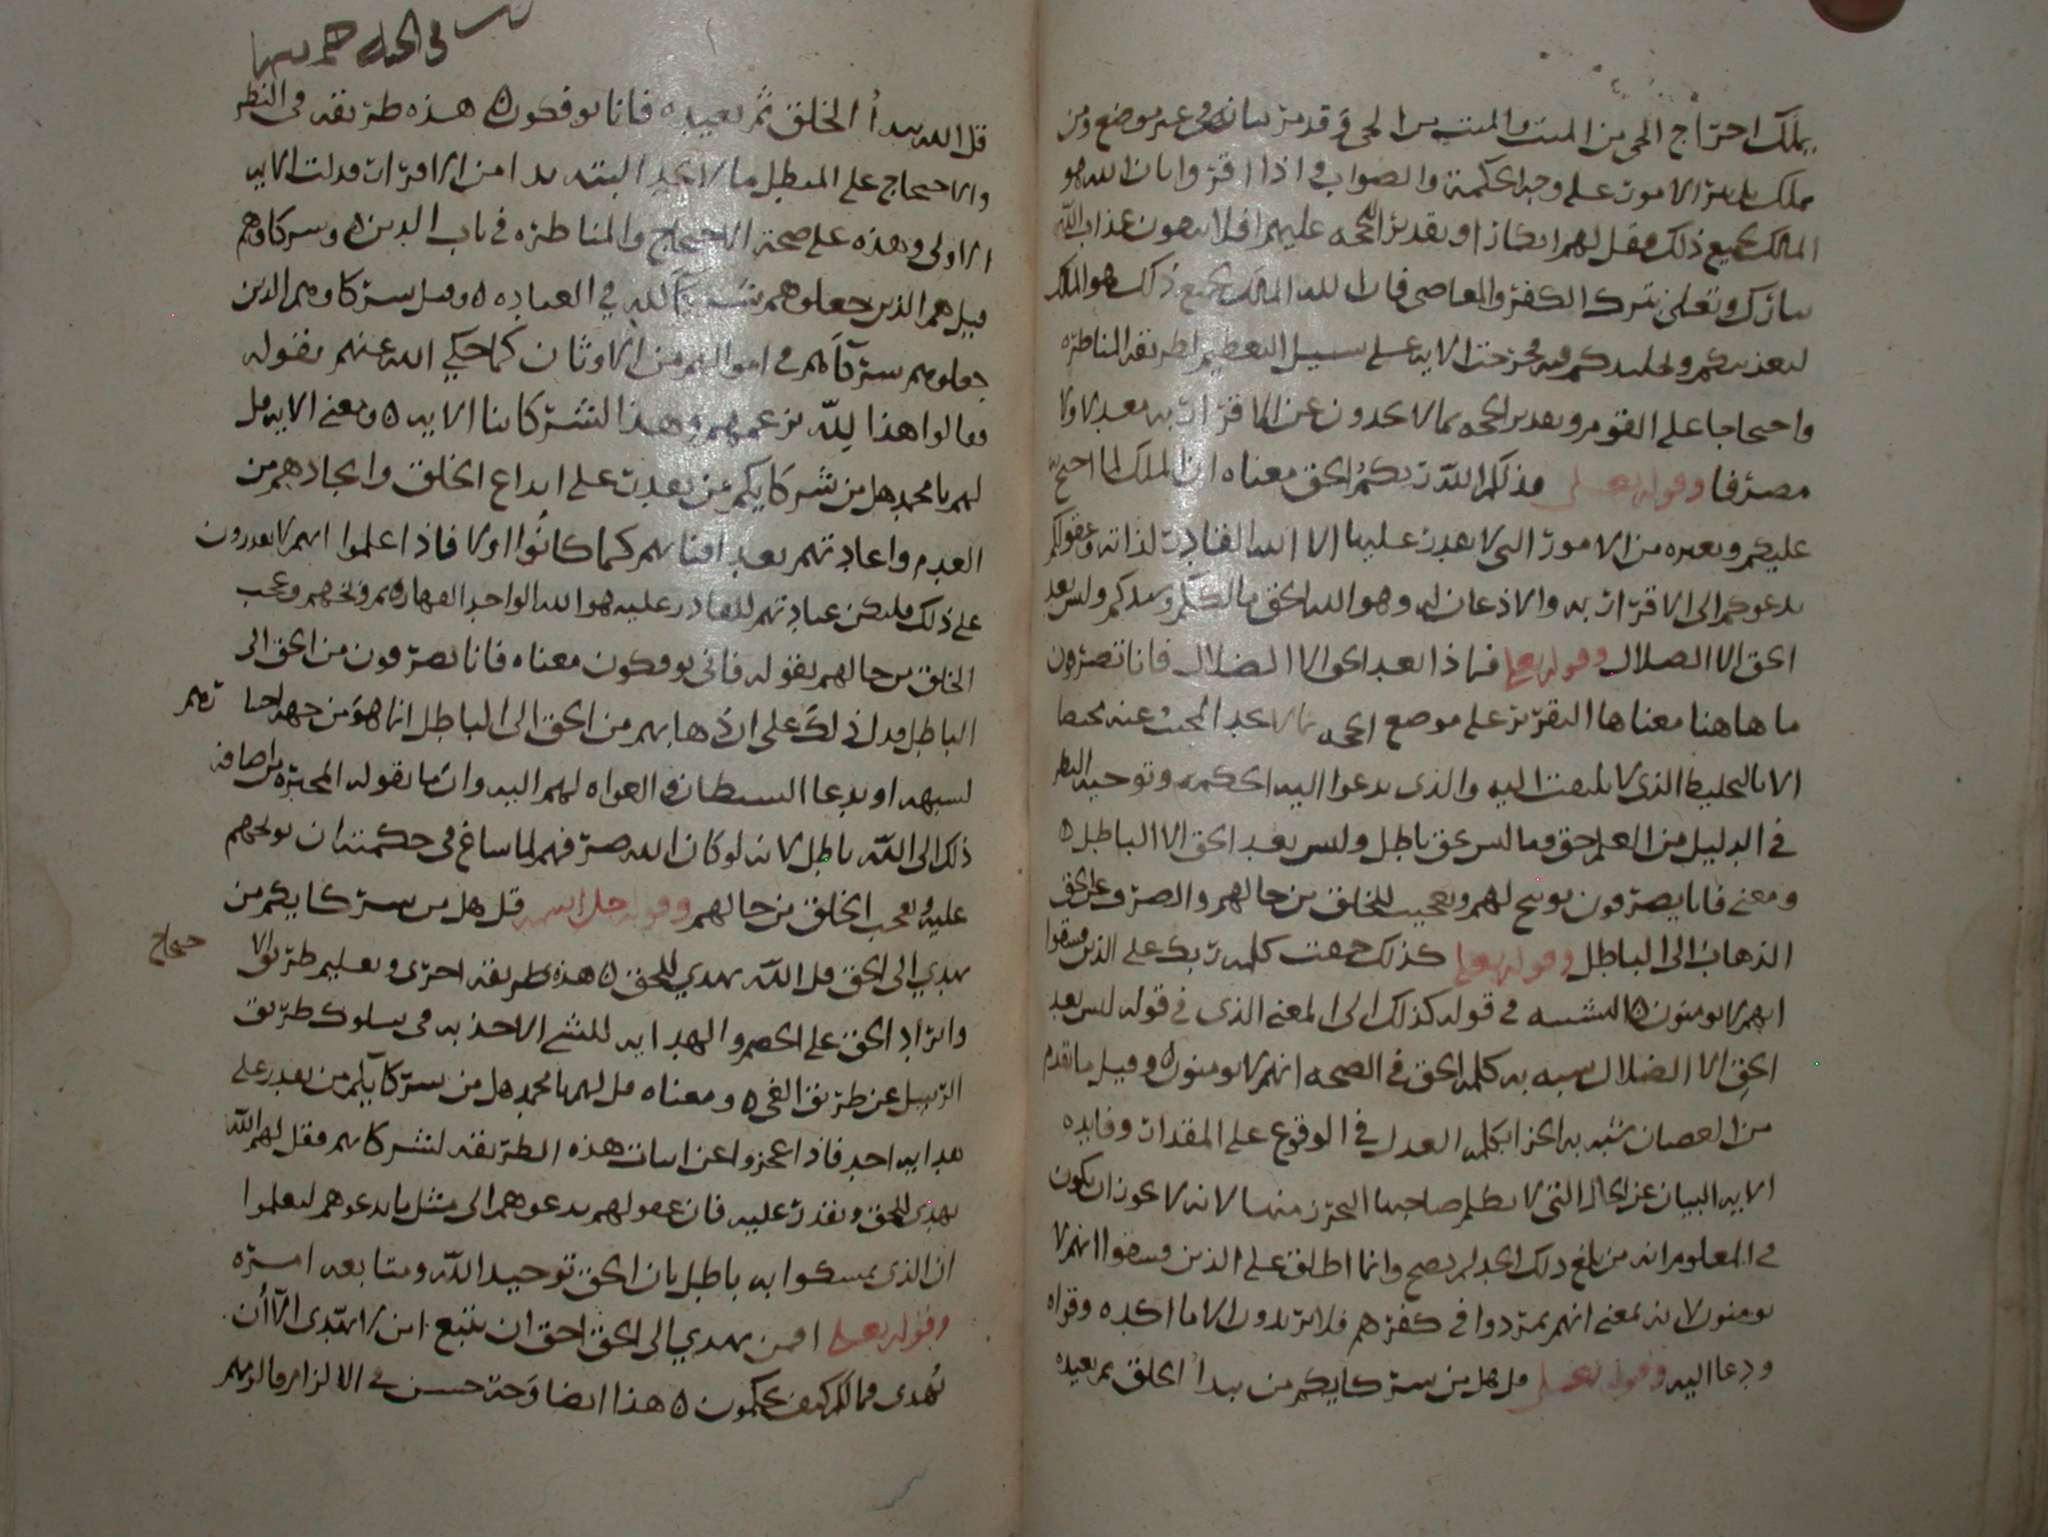 يملك اخراج الحي من الميت والميت من الحي وقد مر بيانه في غير موضع ومن
يملك تدبير الامور على وجه الحكمة والصواب فاذا اقروا بان الله هو
المالك لجميع ذلك فقل لهم انكارا وتقديرا للحجه عليهم افلا تتقون عذاب الله
تبارك وتعلى بترك الكفر والمعاصي فان الله المالك لجميع ذلك هو المالك
لتعذيبكم وتخليدكم فيه فخرجت الايه على سبيل التعظيم لطريقة المناظره
واحتجاجا على القوم وتقدير الحجه بما لا يجدون عن الاقرار به معدلا ولا
مصرفا وقوله تعلى فذلكم الله ربكم الحق معناه ان الملك لما احتج
عليكم وبغيره من الامور التي لا يقدر عليها الا الله القادر لذاته وعقولكم
تدعوكم الى الاقرار به والاذعان له وهو الله الحق مالككم وسيدكم وليس بعد
الحق الا الضلال وقوله تعلى فماذا بعد الحق الا الضلال فانا تصرفون
ما هاهنا معناها التقرير على موضع الحجه لانه لا يجد المجيب عنه محيصا
الا بالتخليط الذي لا يلتفت اليه والذي تدعوا اليه الحكمه وتوجبه النظر
في الدليل من العلم حق وما ليس بحق باطل وليس بعد الحق الا الباطل ه
ومعنى فانا يصرفون توبيخ لهم وتعجيب للخلق من حالهم والصرف عن الحق
الذهاب الى الباطل وقوله تعلى كذلك حقت كلمه ربك على الذين فسقوا
انهم لا يومنون ه التشبيه في قوله كذلك الى المعنى الذي في قوله ليس بعد
الحق الا الضلال شبه به كلمه الحق في الصحه انهم لا يومنون ه وقيل ما تقدم
من العصيان شبه به الجزا بكلمه العدل في الوقوع على المقدار وفايده
الايه البيان عن الحال التي لا يطلم صاحبها التحرز منها لانه لا يجوز ان يكون
في المعلوم انه من بلغ ذلك الحد لم يصح وانما اطلق على الذين فسقوا انهم لا
يومنون لانه بمعنى انهم تمردوا في كفرهم فلا يريدون الا ما اكده وقواه
ودعا اليه وقوله تعلى قل هل من شركايكم من يبدأ الخلق ثم يعيده
قل الله يبدأ الخلق ثم يعيده فانا توفكون ه هذه طريقه في النظر
والاحتجاج على المبطل بما لا يجد البته بدا من الاقرار ودلت الايه
الاولى وهذه على صحة الاحتجاج والمناظره في باب الدين ه وشركاوهم
قيل هم الذين جعلوهم شركآ لله في العباده ه وقيل شركاوهم الذين
جعلوهم شركآهم في اموالهم من الاوثان كما حكي الله عنهم بقوله
فقالوا هذا لله بزعمهم وهذا لشركاينا الايه ه ومعنى الايه قل
لهم يا محمد هل من شركايكم من يقدر على ابداع الخلق وايجادهم من
العدم واعادتهم بعد افنايهم كما كانوا اولا فاذا علموا انهم لا يقدرون
على ذلك فليكن عبادتهم للقادر عليه هو الله الواحد القهار ثم وبخهم وعجب
الخلق من حالهم بقوله فانى توفكون معناه فانا تصرفون من الحق الى
الباطل فدل ذلك على ان ذهابهم من الحق الى الباطل انما هو من جهه اختيارهم
لشبهه او بدعا الشيطان والغواه لهم اليه وان ما يقوله المجبره من اضافه
ذلك الى الله باطل لانه لو كان الله صرفهم لما ساغ في حكمته ان يوبخهم
عليه وتعجب الخلق من حالهم وقوله جل اسمه قل هل من شركايكم من
يهدي الى الحق قل الله يهدي للحق ه هذه طريقه اخرى وتعليم طريق الاحتجاج
وايراد الحق على الخصم والهدايه للشي الاخذ به في سلوك طريق
الرشد عن طريق الغي ه ومعناه قل لهم يا محمد هل من شركايكم من يقدر على
هدايه احد فاذا عجزوا عن اثبات هذه الطريقه لشركايهم فقل لهم الله
يهدي للحق ويقدر عليه فان عقولهم تدعوهم الى مثل ما تدعوهم ليعلموا
ان الذي تمسكوا به باطل بان الحق توحيد الله ومتابعه امره
وقوله تعلى افمن يهدي الى الحق احق ان يتبع امن لا يهتدى الا ان
يهدى فما لكم كيف تحكمون ه هذا ايضا وجه حسن في الالزام والزمهم